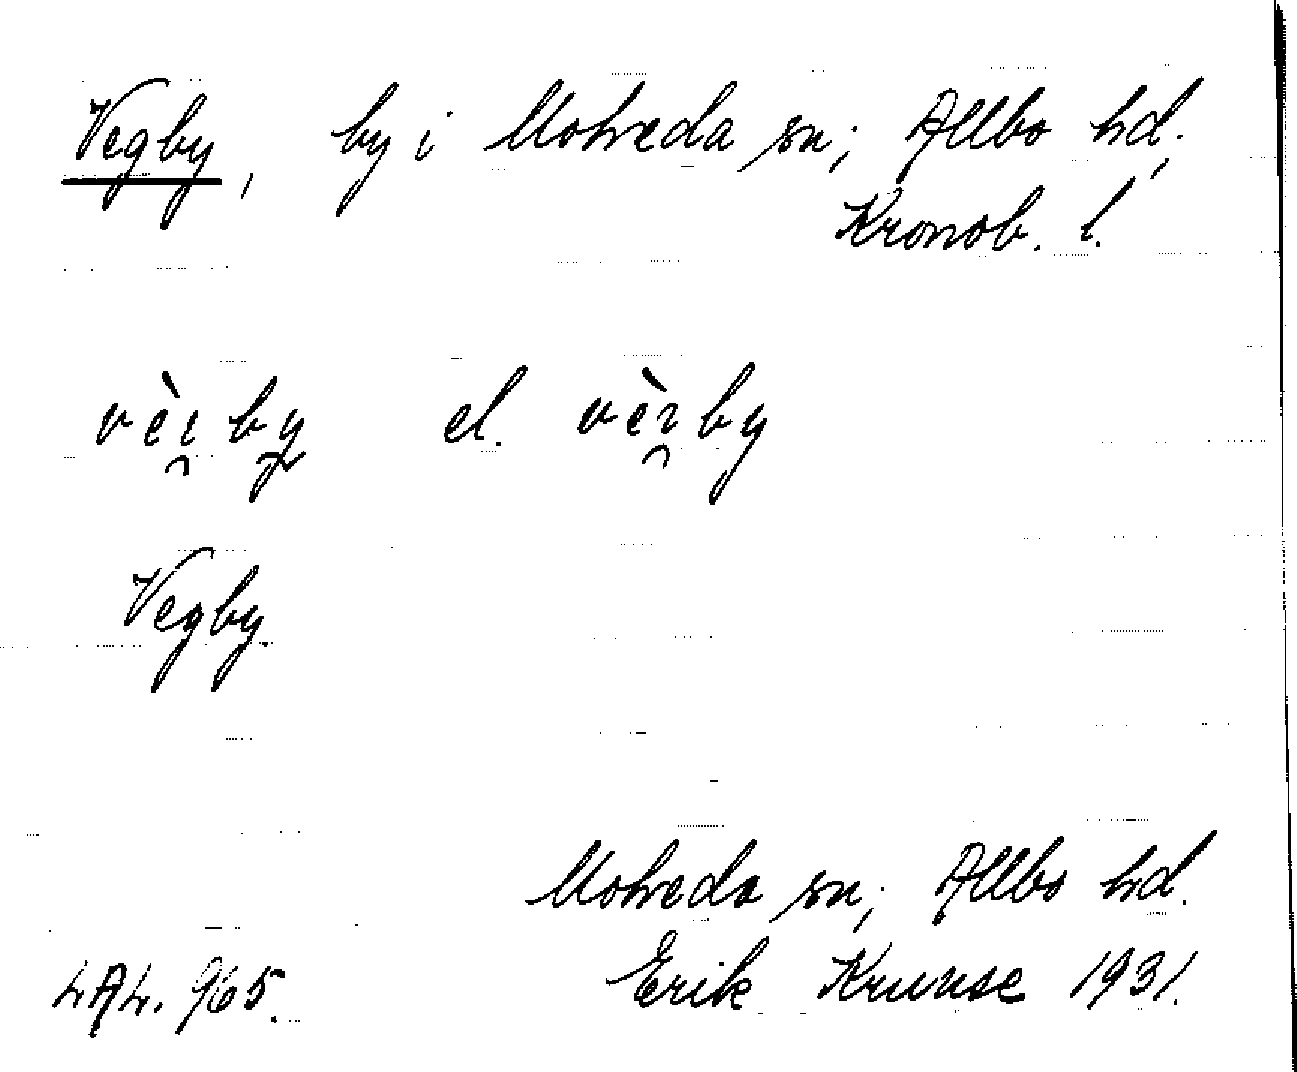 Vegby, by i Moheda sn; Allbo hd,
Kronob. l.
vèi̯by el. vèi̯by
Vegby.
Moheda sn; Allbo hd.
LAL. 965. Erik Kruuse 1931.